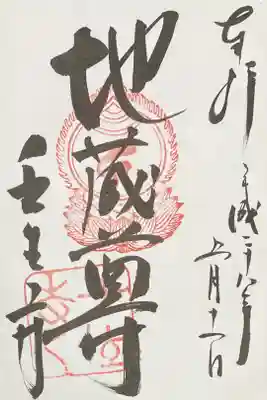 奉拝 平成二十八年
五月十一日
地蔵尊
壬生寺